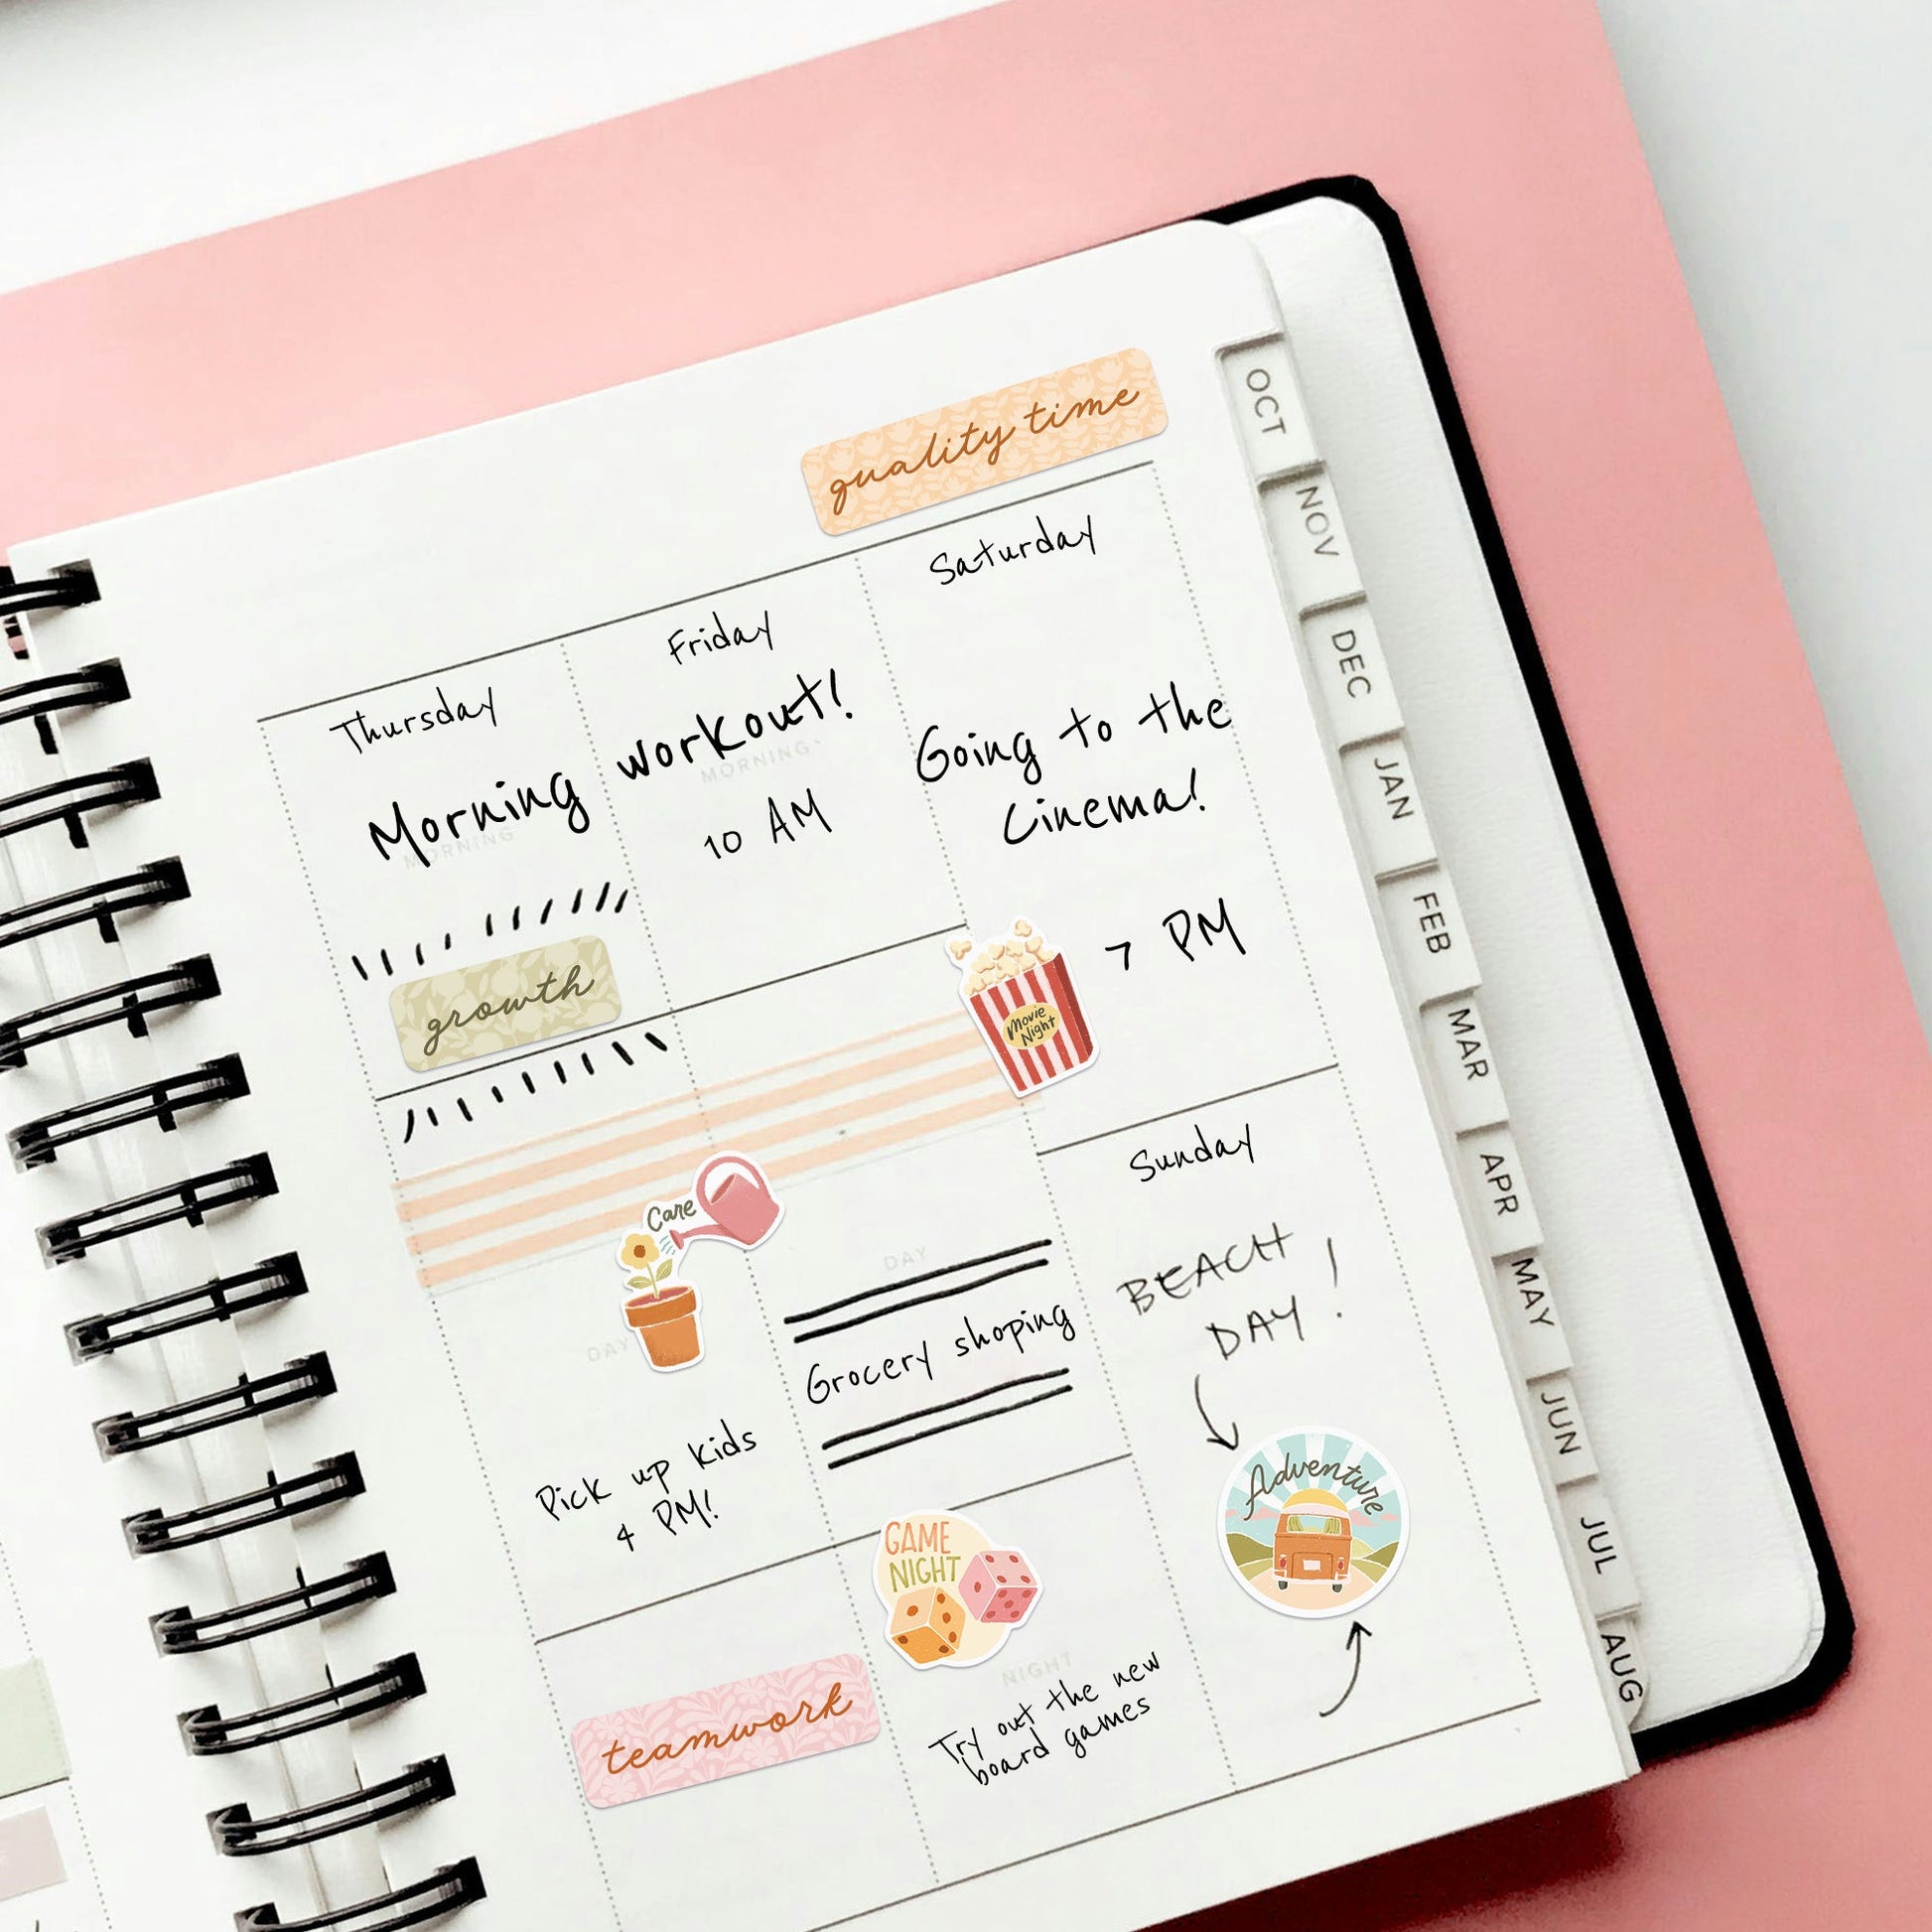 quality time
Thursday
Friday
Saturday
Morning workout!
MORNING
MORNING
10 AM
Going to the
Cinema!
7 PM
growth
Movie
Night
Care
DAY
Pick up kids
4 PM!
DAY
Grocery shoping
Sunday
BEACH
DAY!
Adventure
teamwork
GAME
NIGHT
NIGHT
Try out the new
board games
OCT
NOV
DEC
JAN
FEB
MAR
APR
MAY
JUN
JUL
AUG